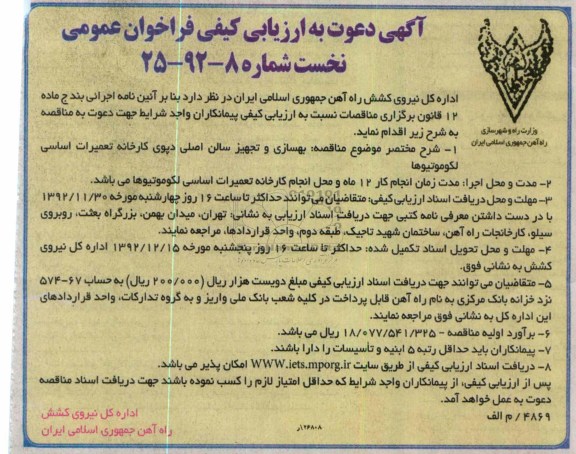 آگهی دعوت به ارزیابی کیفی فراخوان عمومی
نخست شماره ۸-۹۲-۲۵
وزارت راه و شهرسازی
راه آهن جمهوری اسلامی ایران
اداره کل نیروی کشش راه آهن جمهوری اسلامی ایران در نظر دارد بنا بر آئین نامه اجرائی بند ج ماده
۱۲ قانون برگزاری مناقصات نسبت به ارزیابی کیفی پیمانکاران واجد شرایط جهت دعوت به مناقصه
به شرح زیر اقدام نماید.
۱- شرح مختصر موضوع مناقصه: بهسازی و تجهیز سالن اصلی دپوی کارخانه تعمیرات اساسی
لکوموتیوها
۲- مدت و محل اجرا: مدت زمان انجام کار ۱۲ ماه و محل انجام کارخانه تعمیرات اساسی لکوموتیوها می باشد.
۳- مهلت و محل دریافت اسناد ارزیابی کیفی: متقاضیان می توانند حداکثر تا ساعت ۱۶ روز چهارشنبه مورخه ۱۳۹۲/۱۱/۳۰
با در دست داشتن معرفی نامه کتبی جهت دریافت اسناد ارزیابی به نشانی: تهران، میدان بهمن، بزرگراه بعثت، روبروی
سیلو، کارخانجات راه آهن، ساختمان شهید تاجیک، طبقه دوم، واحد قراردادها، مراجعه نمایند.
۴- مهلت و محل تحویل اسناد تکمیل شده: حداکثر تا ساعت ۱۶ روز پنجشنبه مورخه ۱۳۹۲/۱۲/۱۵ اداره کل نیروی
کشش به نشانی فوق.
۵- متقاضیان می توانند جهت دریافت اسناد ارزیابی کیفی مبلغ دویست هزار ریال (۲۰۰/۰۰۰ ریال) به حساب ۶۷-۵۷۴
نزد خزانه بانک مرکزی به نام راه آهن قابل پرداخت در کلیه شعب بانک ملی واریز و به گروه تدارکات، واحد قراردادهای
این اداره کل به نشانی فوق مراجعه نمایند.
۶- برآورد اولیه مناقصه - ۱۸/۰۷۷/۵۴۱/۳۲۵ ریال می باشد.
۷- پیمانکاران باید حداقل رتبه ۵ ابنیه و تأسیسات را دارا باشند.
۸- دریافت اسناد ارزیابی کیفی از طریق سایت WWW.iets.mporg.ir امکان پذیر می باشد.
پس از ارزیابی کیفی، از پیمانکاران واجد شرایط که حداقل امتیاز لازم را کسب نموده باشند جهت دریافت اسناد مناقصه
دعوت به عمل خواهد آمد.
۴۸۶۹ / م الف
اداره کل نیروی کشش
راه آهن جمهوری اسلامی ایران
۱۲۶۸۰۸ر